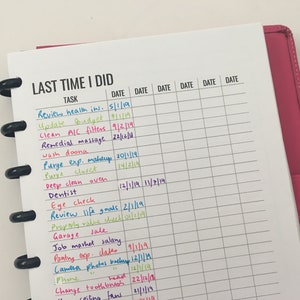 LAST TIME I DID
TASK DATE DATE DATE DATE DATE DATE
Review health ins. 5/1/19
Update budget 9/1/19
Clean A/C filters 9/2/19
Remedial massage 22/12/18
Wash doona
Purge exp. makeup 20/1/19
Purge closet
Deep clean oven
Dentist 12/1/19 11/2/19
Eye check
Review life goals 2/1/19
Property value check
Garage sale
Job market salary
Pantry exp dates 9/1/19
Camera photos backup 12/1/19
Phone
Change toothbrush